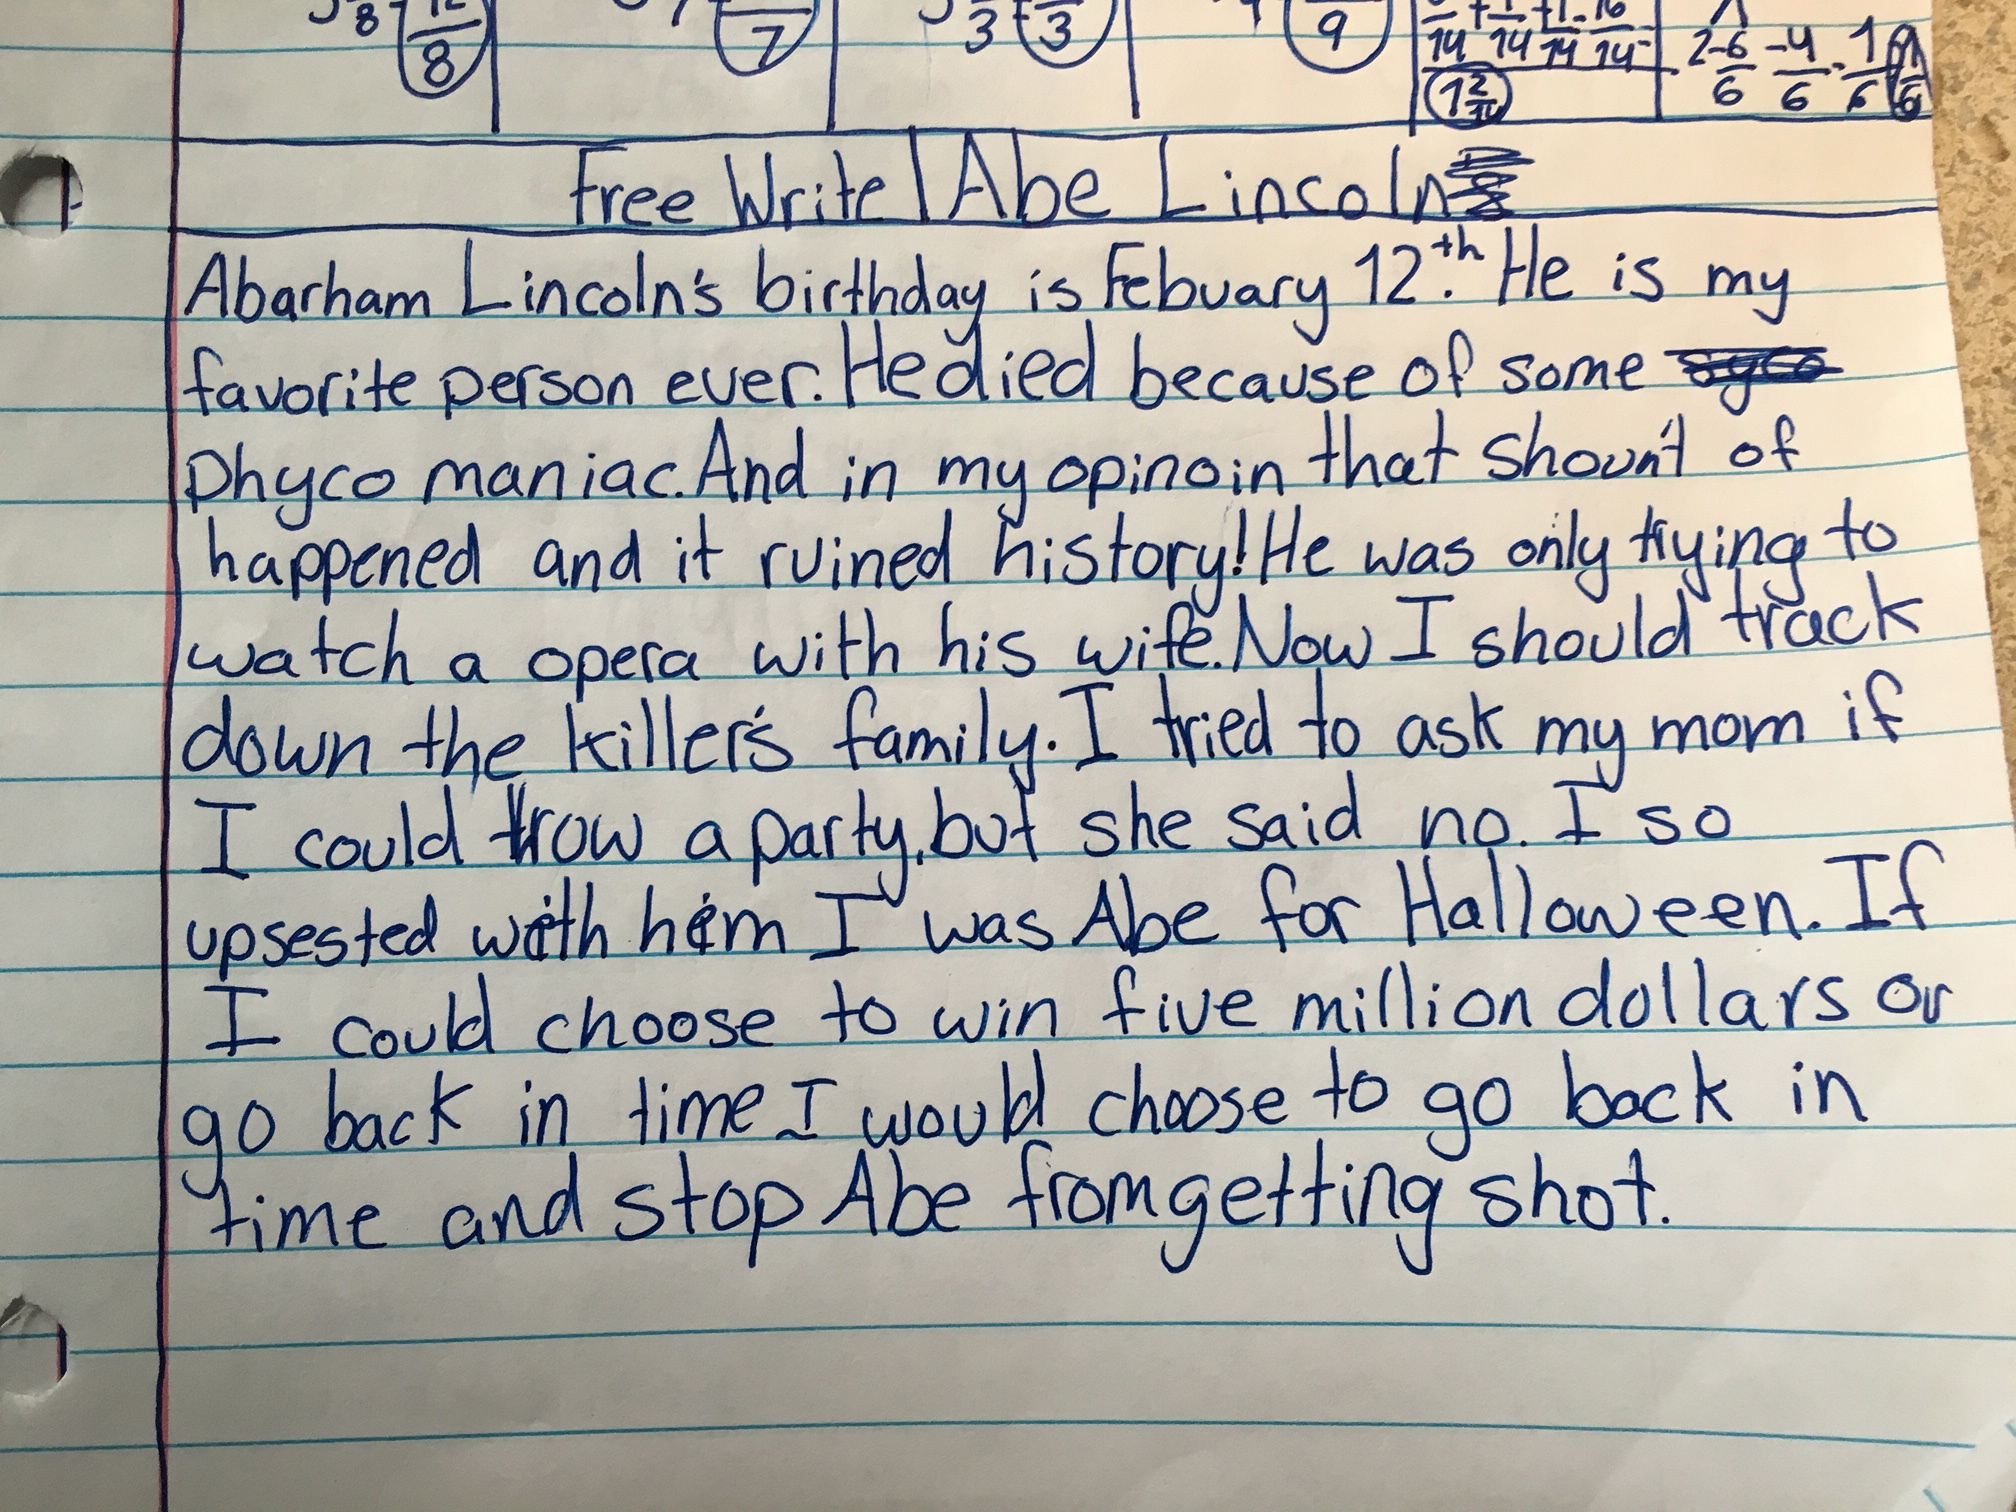 8 12/8 7 3 3 9 14 14 14 14
1 2/14 2-6/6 -4/6 -1/6
Free Write | Abe Lincoln
Abarham Lincoln's birthday is Febuary 12th. He is my
favorite person ever. He died because of some syco
phyco maniac. And in my opinoin that shoun't of
happened and it ruined history! He was only trying to
watch a opera with his wife. Now I should track
down the killer's family. I tried to ask my mom if
I could trow a party, but she said no. I so
upsested with him I was Abe for Halloween. If
I could choose to win five million dollars or
go back in time I would choose to go back in
time and stop Abe from getting shot.